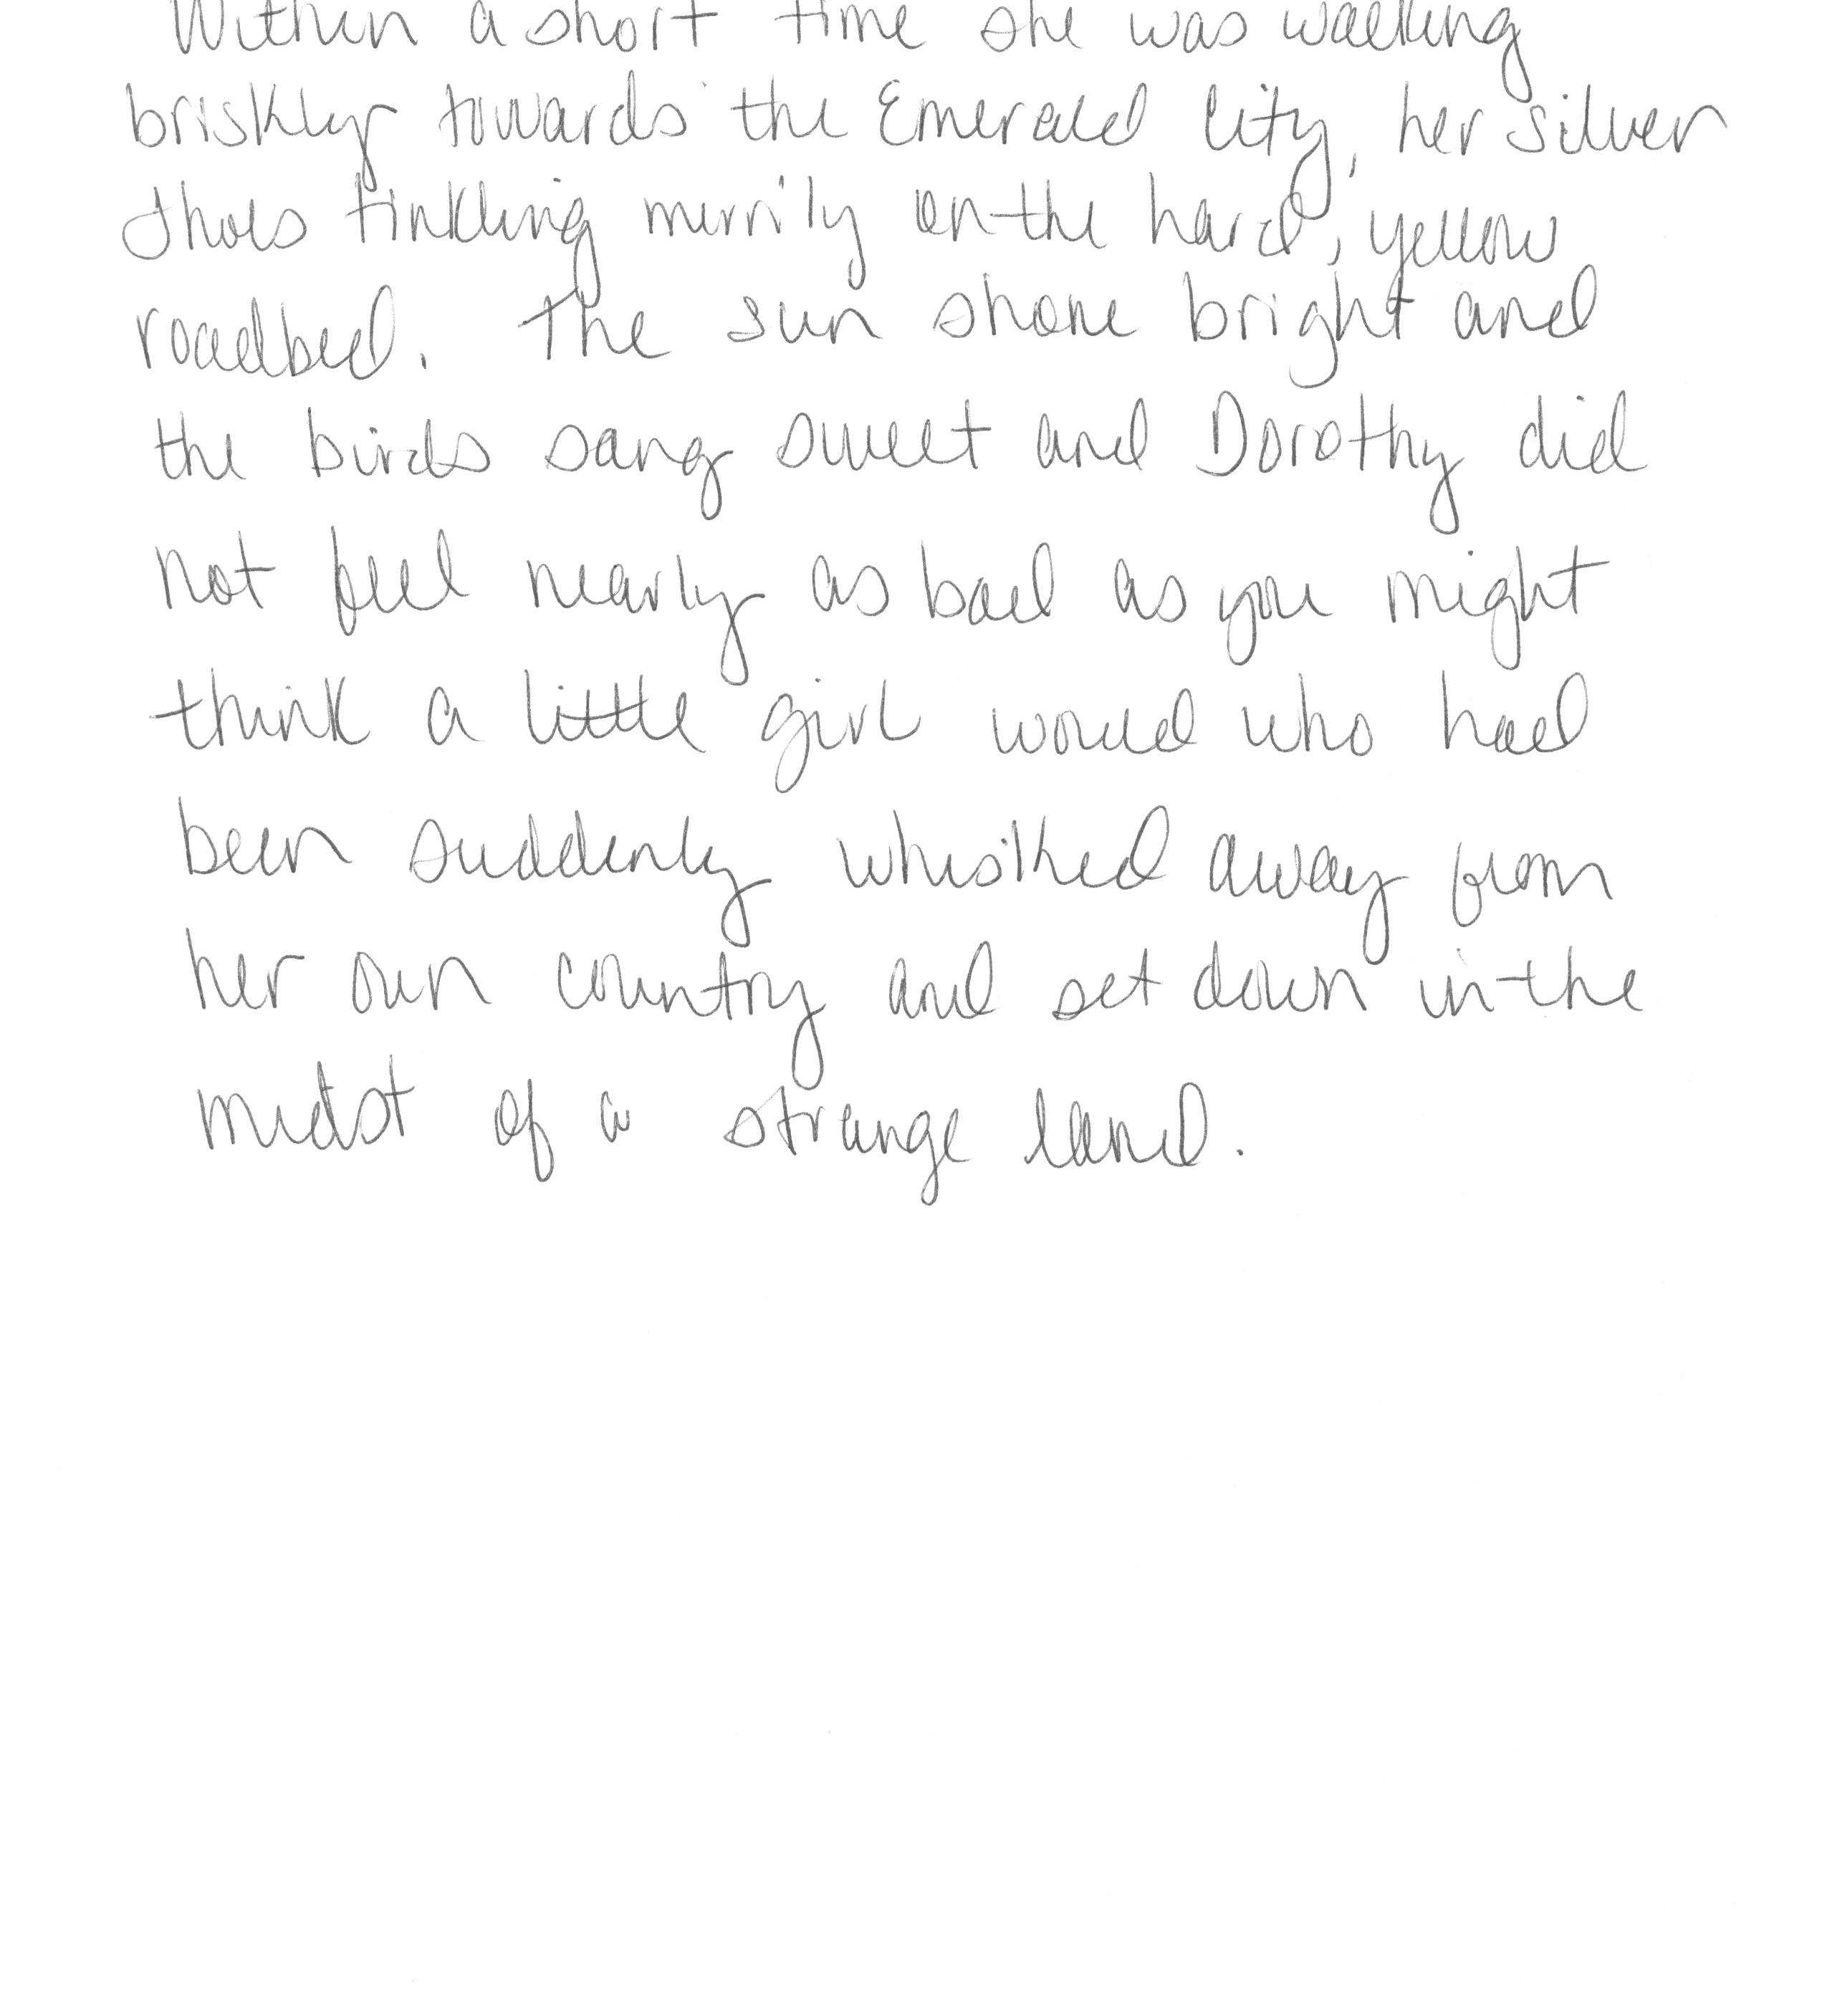 Within a short time she was walking
briskly towards the Emerald City, her silver
shoes tinkling merrily on the hard, yellow
roadbed. The sun shone bright and
the birds sang sweet and Dorothy did
not feel nearly as bad as you might
think a little girl would who had
been suddenly whisked away from
her own country and set down in the
midst of a strange land.